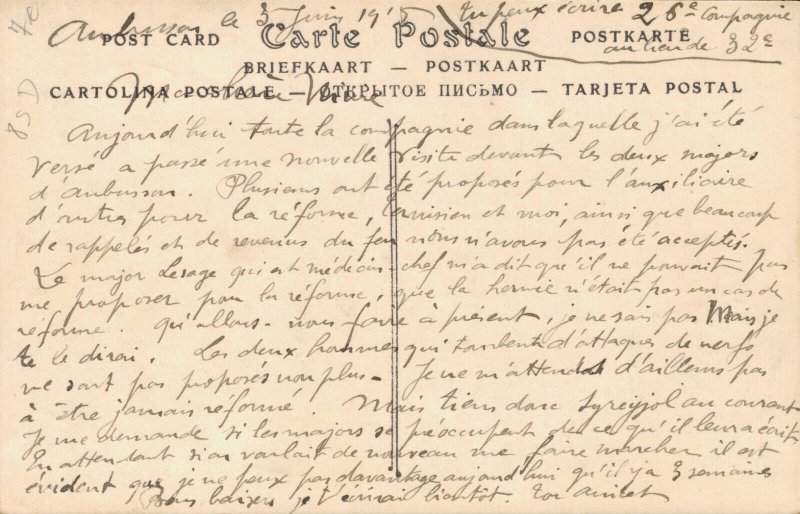 Aubusson le 3 Juin 1915 Tu peux écrire 26e Compagnie
au lieu de 32e
POST CARD Carte Postale POSTKARTE
BRIEFKAART — POSTKAART
CARTOLINA POSTALE — ОТКРЫТОЕ ПИСЬМО — TARJETA POSTAL
Aujourd'hui toute la compagnie dans laquelle j'ai été
versé a passé une nouvelle visite devant les deux majors
d'Aubusson. Plusieurs ont été proposés pour l'auxiliaire
d'autres pour la réforme, et moi, ainsi que beaucoup
de rappelés et de revenus du feu nous n'avons pas été acceptés.
Le major Lesage qui est médecin-chef m'a dit qu'il ne pouvait pas
me proposer pour la réforme, que la hernie n'était pas un cas de
réforme. Qu'allons-nous faire à présent, je ne sais pas Mais je
te le dirai. Les deux hommes qui tombent d'attaques de nerfs
ne sont pas proposés non plus - Je ne m'attends d'ailleurs pas
à être jamais réformé. Mais tiens donc Syreyjol au courant
Je me demande si les majors se préoccupent de ce qu'il leur a écrit
En attendant si on voulait de nouveau me faire marcher il est
évident que je ne peux pas davantage aujourd'hui qu'il y a 3 semaines
Bons baisers je t'écrirai bientôt. Ton